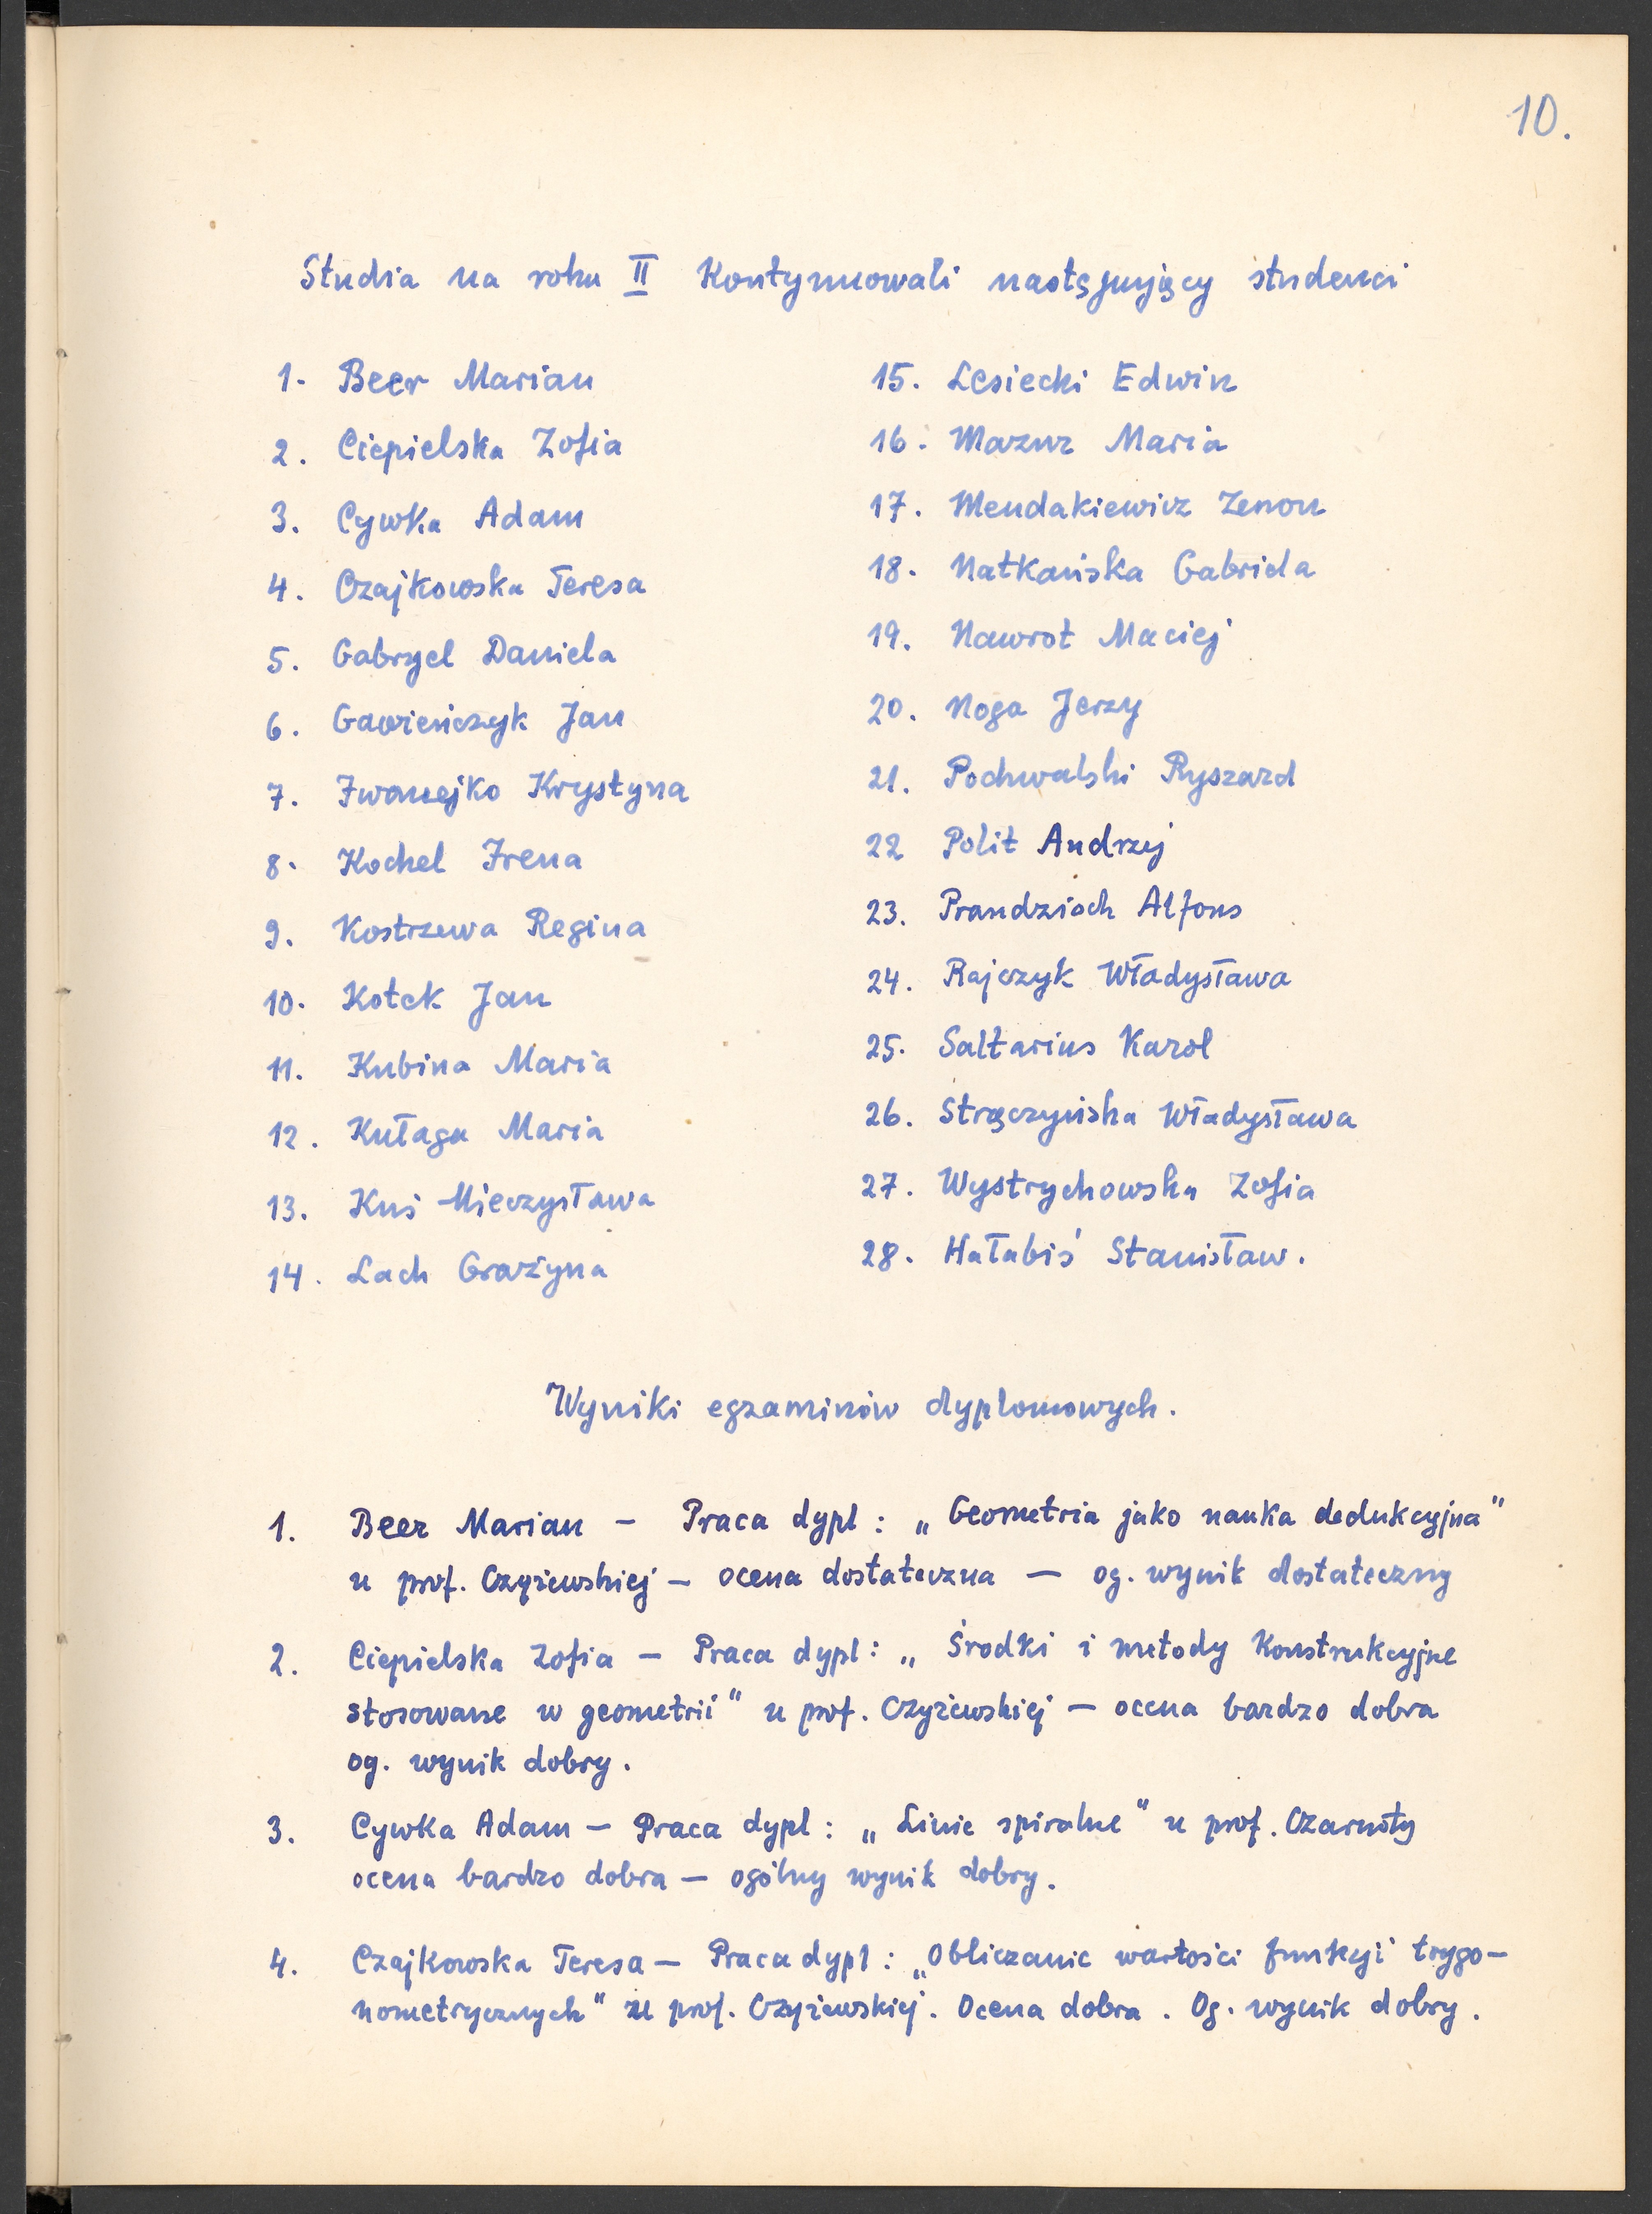 10.
Studia na roku II kontynuowali następujący studenci
1. Beer Marian
2. Ciepielska Zofia
3. Cywka Adam
4. Czajkowska Teresa
5. Gabryel Daniela
6. Gawieńczyk Jan
7. Iwanejko Krystyna
8. Kochel Irena
9. Kostrzewa Regina
10. Kotek Jan
11. Kubina Maria
12. Kułaga Maria
13. Kuś Mieczysława
14. Lach Grażyna
15. Lesiecki Edwin
16. Mazur Maria
17. Mendakiewicz Zenon
18. Natkańska Gabriela
19. Nawrot Maciej
20. Noga Jerzy
21. Pochwalski Ryszard
22 Polit Andrzej
23. Prandzioch Alfons
24. Rajczyk Władysława
25. Saltarius Karol
26. Stręczyńska Władysława
27. Wystrychowska Zofia
28. Hałabiś Stanisław.
Wyniki egzaminów dyplomowych.
1. Beer Marian – Praca dypl: „Geometria jako nauka dedukcyjna"
u prof. Czyżewskiej – ocena dostateczna – og. wynik dostateczny
2. Ciepielska Zofia – Praca dypl: „Środki i metody konstrukcyjne
stosowane w geometrii" u prof. Czyżewskiej – ocena bardzo dobra
og. wynik dobry.
3. Cywka Adam – Praca dypl: „Linie spiralne" u prof. Czarnoty
ocena bardzo dobra – ogólny wynik dobry.
4. Czajkowska Teresa – Praca dypl: „Obliczanie wartości funkcji trygo–
nometrycznych" u prof. Czyżewskiej. Ocena dobra. Og. wynik dobry.